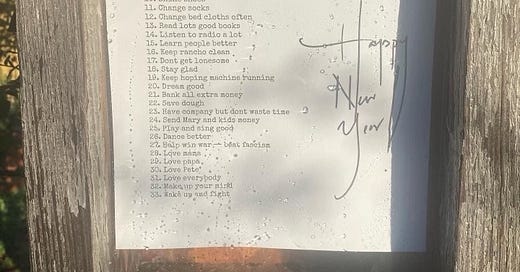 11. Change socks
12. Change bed cloths often
13. Read lots good books
14. Listen to radio a lot
15. Learn people better
16. Keep rancho clean
17. Dont get lonesome
18. Stay glad
19. Keep hoping machine running
20. Dream good
21. Bank all extra money
22. Save dough
23. Have company but dont waste time
24. Send Mary and kids money
25. Play and sing good
26. Dance better
27. Help win war — beat fascism
28. Love mama
29. Love papa
30. Love Pete
31. Love everybody
32. Make up your mind
33. Wake up and fight
Happy
New
Year